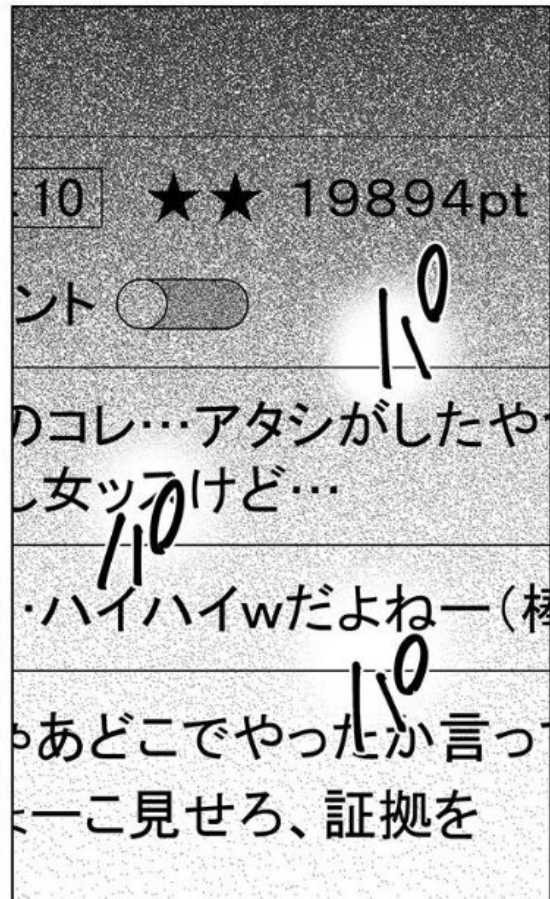 :10 ★★ 19894pt
ント
パ
のコレ…アタシがしたや
し女ッスけど…
パ
・ハイハイwだよねー(棒
パ
ゃあどこでやったか言っ
ょーこ見せろ、証拠を